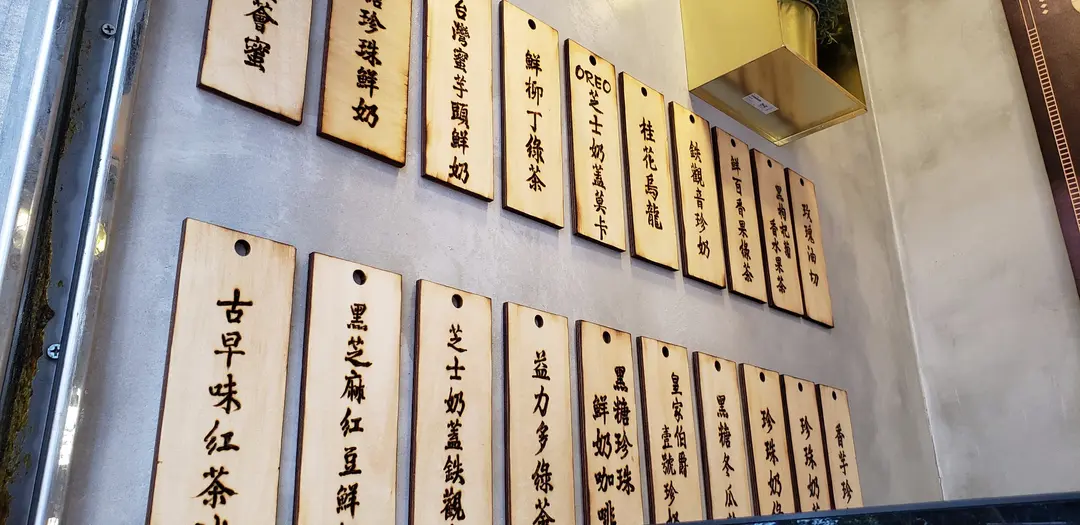 薈蜜
糖珍珠鮮奶
台灣蜜芋頭鮮奶
鮮柳丁綠茶
OREO芝士奶蓋莫卡
桂花烏龍
鉄觀音珍奶
鮮百香果綠茶
黑枸杞菊
香水果茶
玫瑰油切
古早味紅茶
黑芝麻紅豆鮮
芝士奶蓋鉄觀
益力多綠茶
黑糖珍珠
鮮奶咖啡
皇家伯爵
壹號珍奶
黑糖冬瓜
珍珠奶綠
珍珠奶
香芋珍